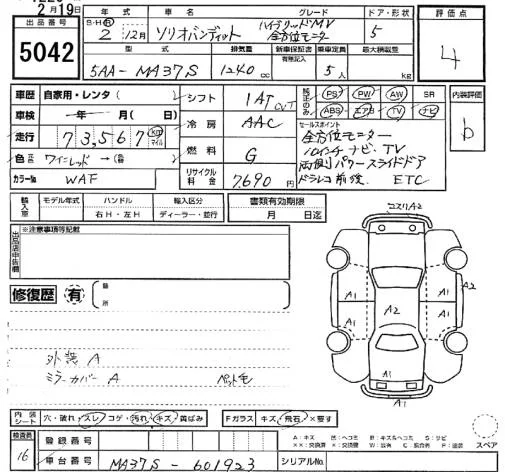 2月19日
出品番号
5042
年式 車名 グレード ドア・形状
S・H・R 2年12月 ソリオバンディット ハイブリッドMV 全方位モニター 5
型式 排気量 新車保証書 乗車定員 最大積載量
有無記入
5AA-MA37S 1240cc 5人 kg
評価点
4
車歴 自家用・レンタ( )
シフト IAT CVT
純正のみ PS PW AW SR
ABS エアB TV ナビ
内装評価
b
車検 年 月( 日)
冷房 AAC
セールスポイント
全方位モニター
10インチナビ、TV
両側パワースライドドア
ドラレコ前後 ETC
走行 73,567 Km マイル
燃料 G
色 ワインレッド→( )
カラーNo WAF
リサイクル料金 7,690円
輸入車 モデル年式 ハンドル 輸入区分
右H・左H ディーラー・並行
書類有効期限
月 日迄
出品店申告欄
※注意事項等記載
修復歴 有 箇所
外装A
ミラーカバーA ペット毛
コスリA2
A1 A1 A2 A1 A1 A2
A1
A1
内装シート 穴・破れ・スレ コゲ・汚れ・キズ・黄ばみ Fガラス キズ・飛石・×要す
検査員 16
登録番号
車台番号 MA37S-601923 シリアルNo.
A:キズ
スペア